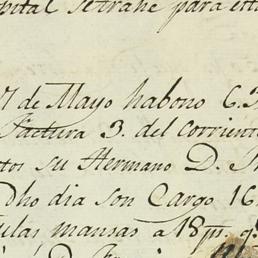 pital setrahe para
7 de Mayo habono 6.
Factura 3. del Corrient
tos su Hermano D.
Dho dia son Cargo 16
ulas mansas a 18